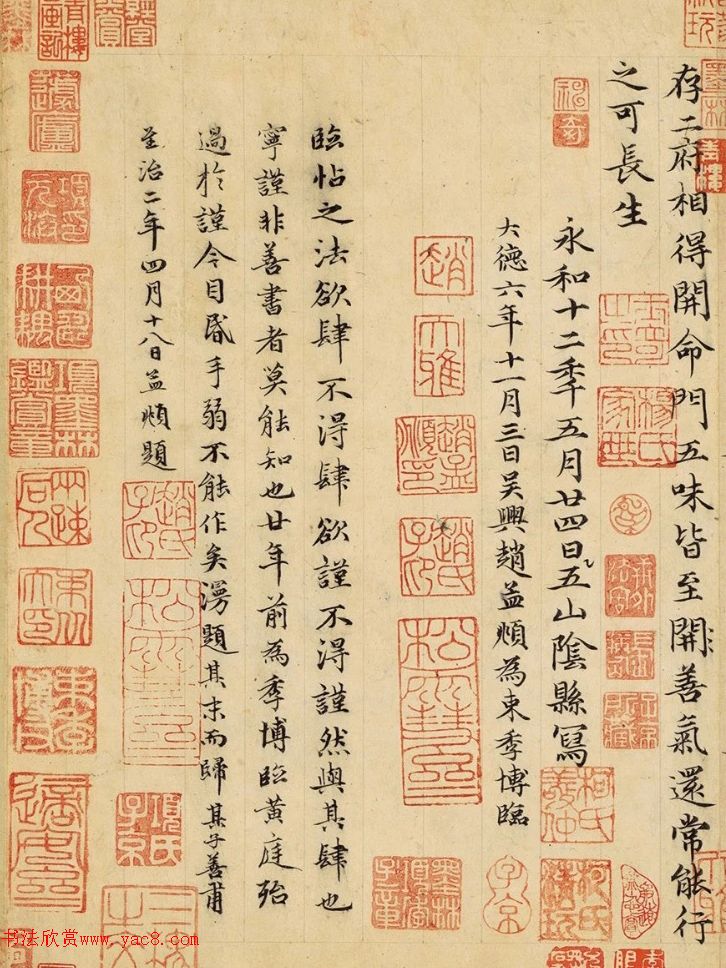 存二府相得開命門五味皆至開善氣還常能行
之可長生
永和十二季五月廿四日五山陰縣寫
大德六年十一月三日吳興趙孟頫為束季博臨
趙
大雅
趙孟頫印
趙氏子昂
松雪齋
臨帖之法欲肆不得肆欲謹不得謹然與其肆也
寧謹非善書者莫能知也廿年前為季博臨黃庭殆
過於謹今目昏手弱不能作矣漫題其末而歸其子善甫
至治二年四月十八日孟頫題
趙氏子昂
松雪齋
項氏子京
子京
书法欣赏www.yac8.com